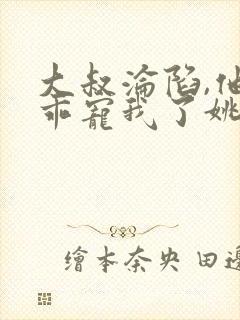 大叔淪陷,他
乖寵我了姚
繪本奈央 田邊